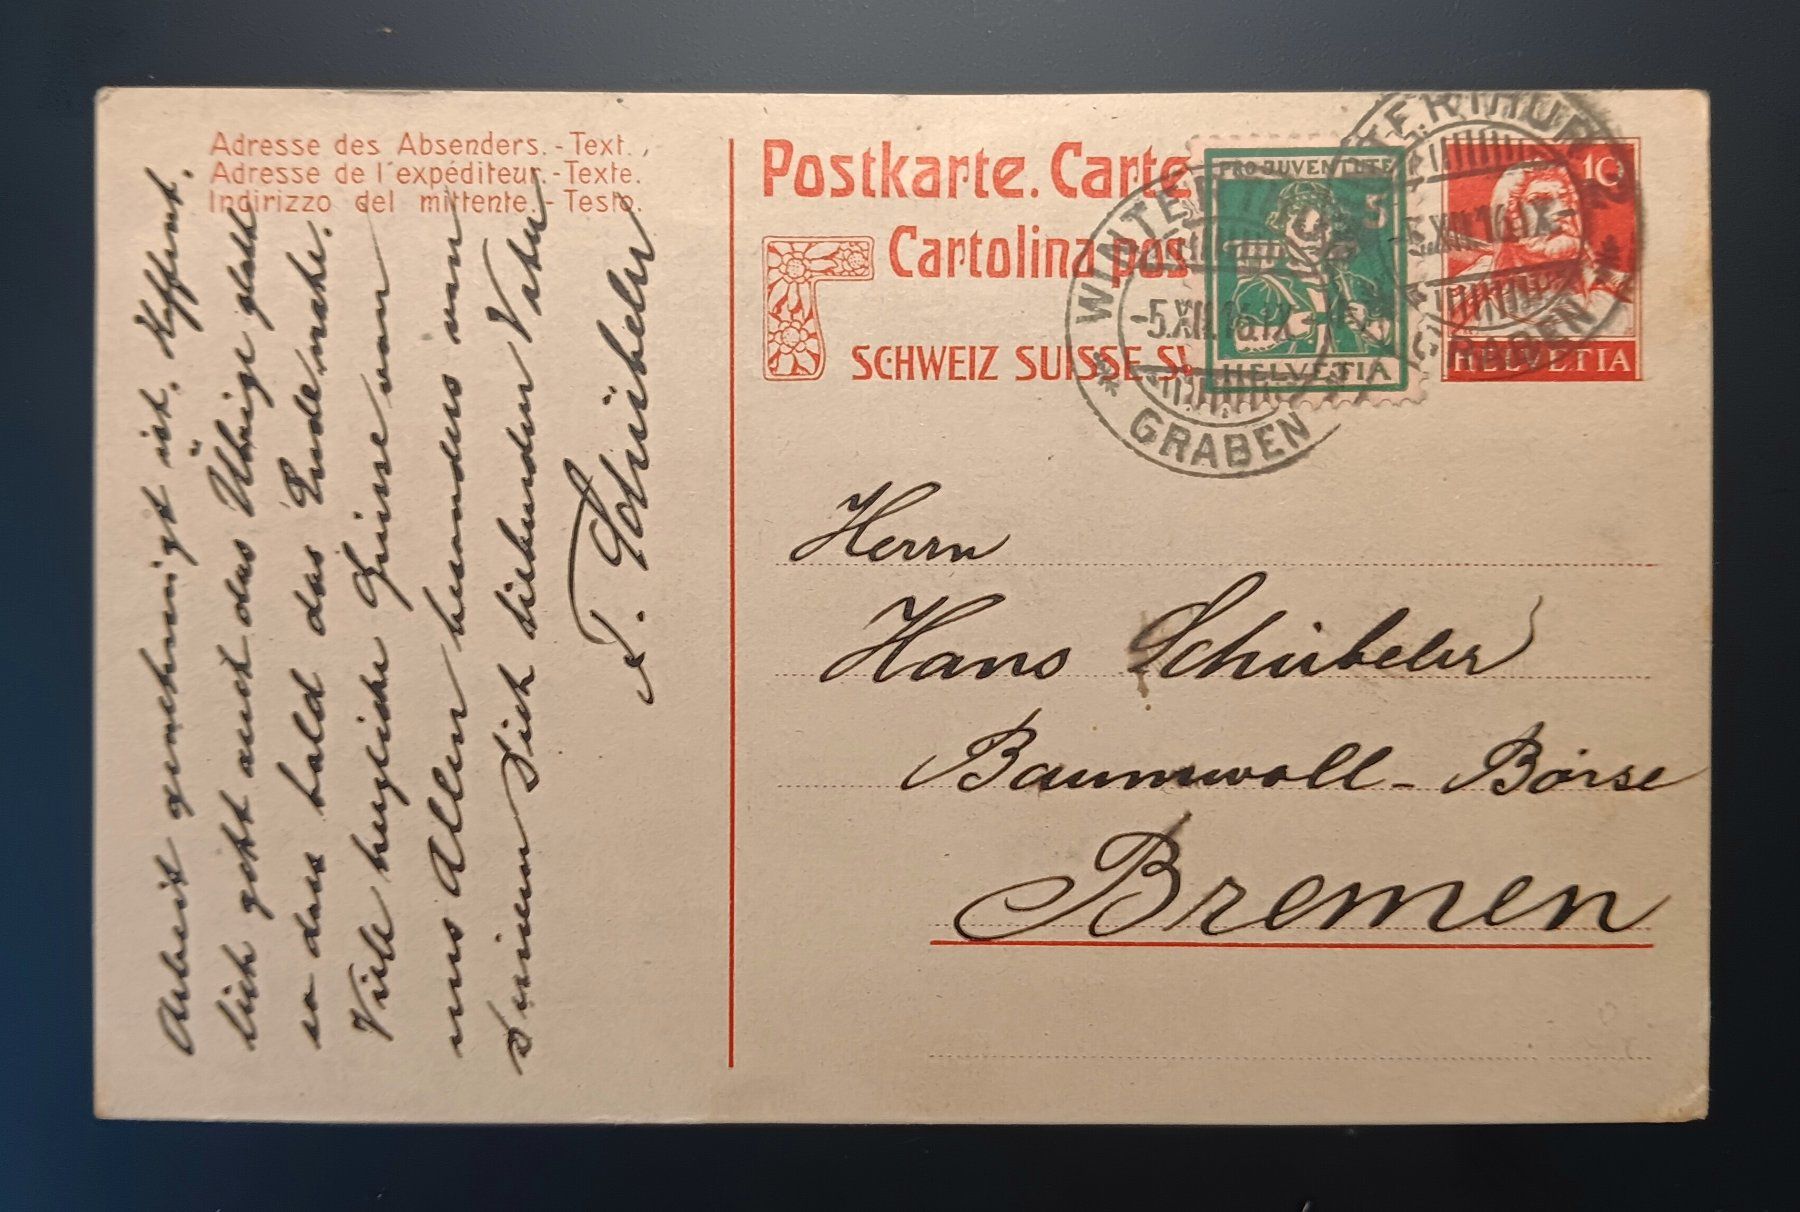 Adresse des Absenders. - Text.
Adresse de l'expéditeur. - Texte.
Indirizzo del mittente. - Testo.
Arbeit genehmigt ist. Hoffent-
lich geht auch das Übrige glatt
so dass bald das Ende naht.
Viele herzliche Grüsse von
uns Allen besonders von
Deinem Dich liebenden Vater
Schübeler
Postkarte. Carte
Cartolina pos
SCHWEIZ SUISSE S
PRO JUVENTUTE
5
HELVETIA
10
HELVETIA
WINTERTHUR
-5.XII.16.IX-
GRABEN
WINTERTHUR
-5.XII.16.IX-
GRABEN
Herrn
Hans Schübeler
Baumwoll-Börse
Bremen